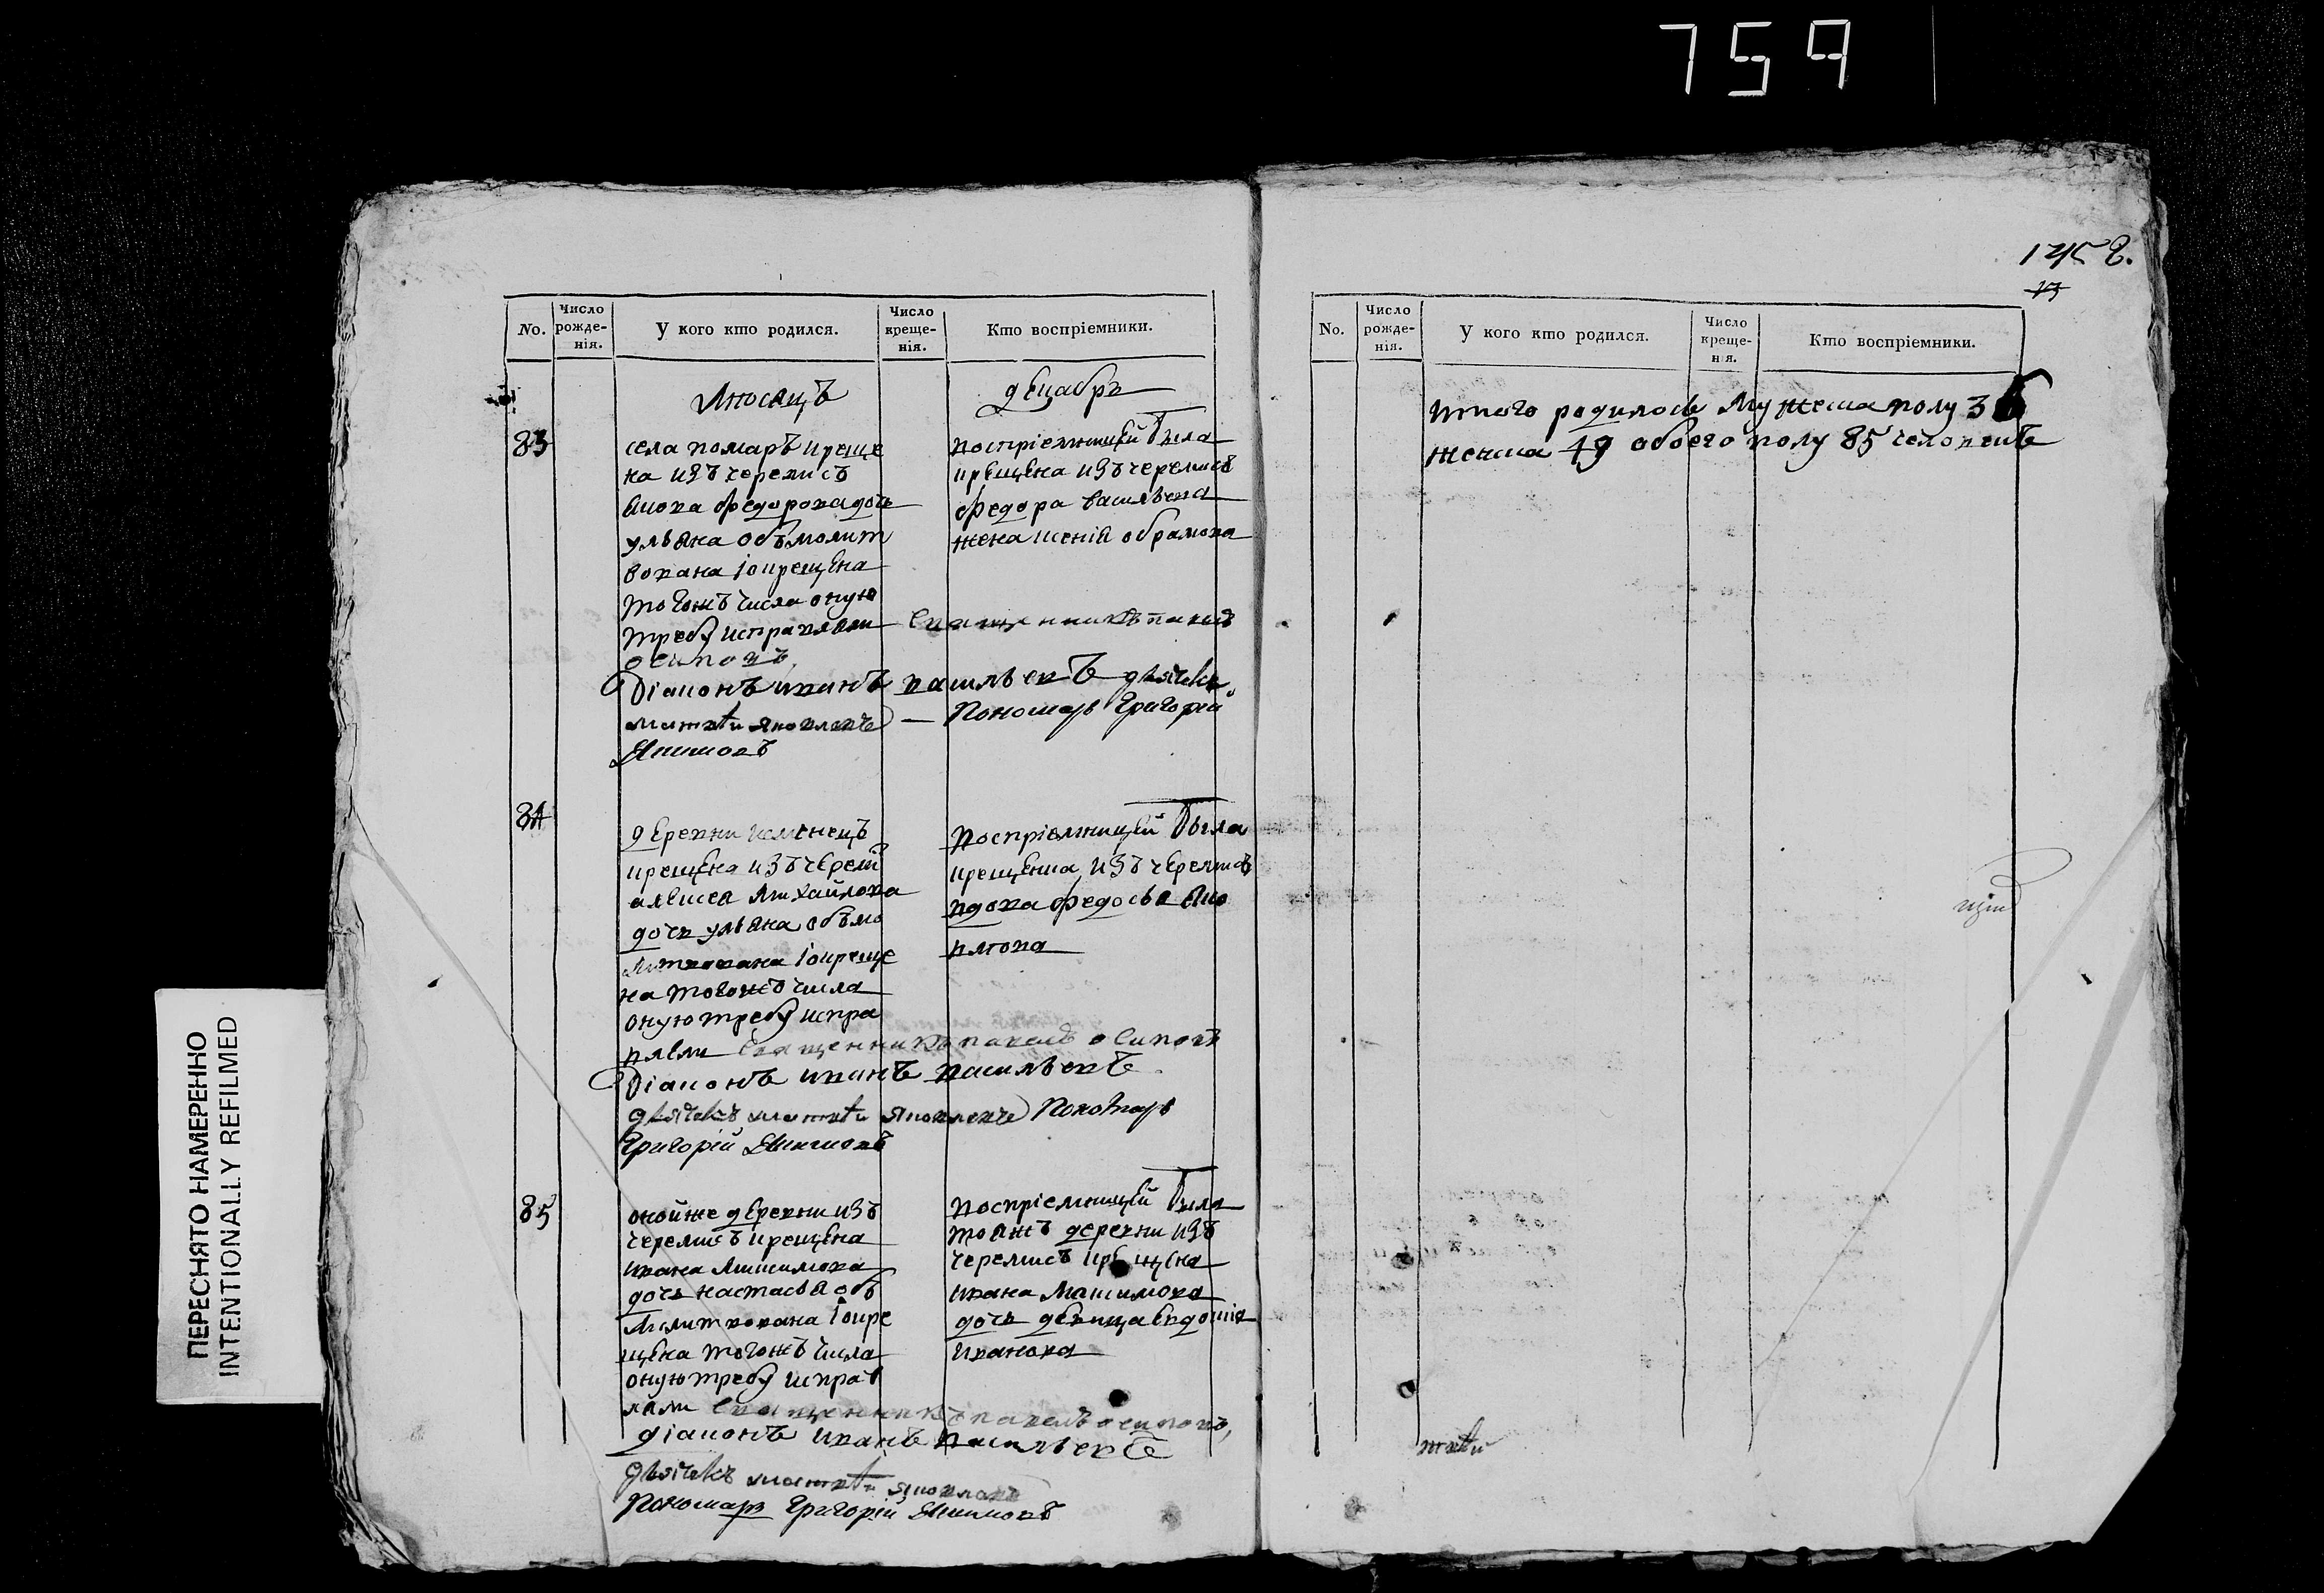 759
125 8.
13
ПЕРЕСНЯТО НАМЕРЕННО
INTENTIONALLY REFILMED
No.
Число рожде-нія.
У кого кто родился.
Число креще-нія.
Кто воспріемники.
Мносяцъ
декабрь
83
села помаръ креще
на изъ черемисъ
якова федорова дочь
ульяна объмолит
вована i окрещена
тогожъ числа оную
требу исправляли священникъ павелъ
осиповъ
Діаконъ иванъ васильевъ дьячекъ
матвѣй яковлевъ Пономарь Григорей
Якимовъ
воспріемницей была
крещена изъ черемисъ
федора васильева
жена ксенія обрамова
84
деревни
крещена изъ черемисъ
алексея михайлова
дочь ульяна объмо
литвована i окреще
на тогожъ числа
оную требу испра
вляли священникъ павелъ осиповъ
Діаконъ иванъ васильевъ
дьячекъ матвѣй яковлевъ Пономарь
Григорій Якимовъ
воспріемницей была
крещенна изъ черемисъ
вдова федосья яко
влева
85
оной же деревни изъ
черемисъ крещена
ивана якимова
дочь настасья объ
молитвована i окре
щена тогожъ числа
оную требу исправ
ляли священникъ павелъ осиповъ,
діаконъ иванъ васильевъ
дьячекъ матвѣй яковлевъ
Пономарь Григорій Якимовъ
воспріемницей была
тояжъ деревни изъ
черемисъ крещена
ивана максимова
дочь девица евдокія
иванова
No.
Число рожде-нія.
У кого кто родился.
Число креще-нія.
Кто воспріемники.
итого родилось мужеска полу 36
женска 49 обоего полу 85 человекъ